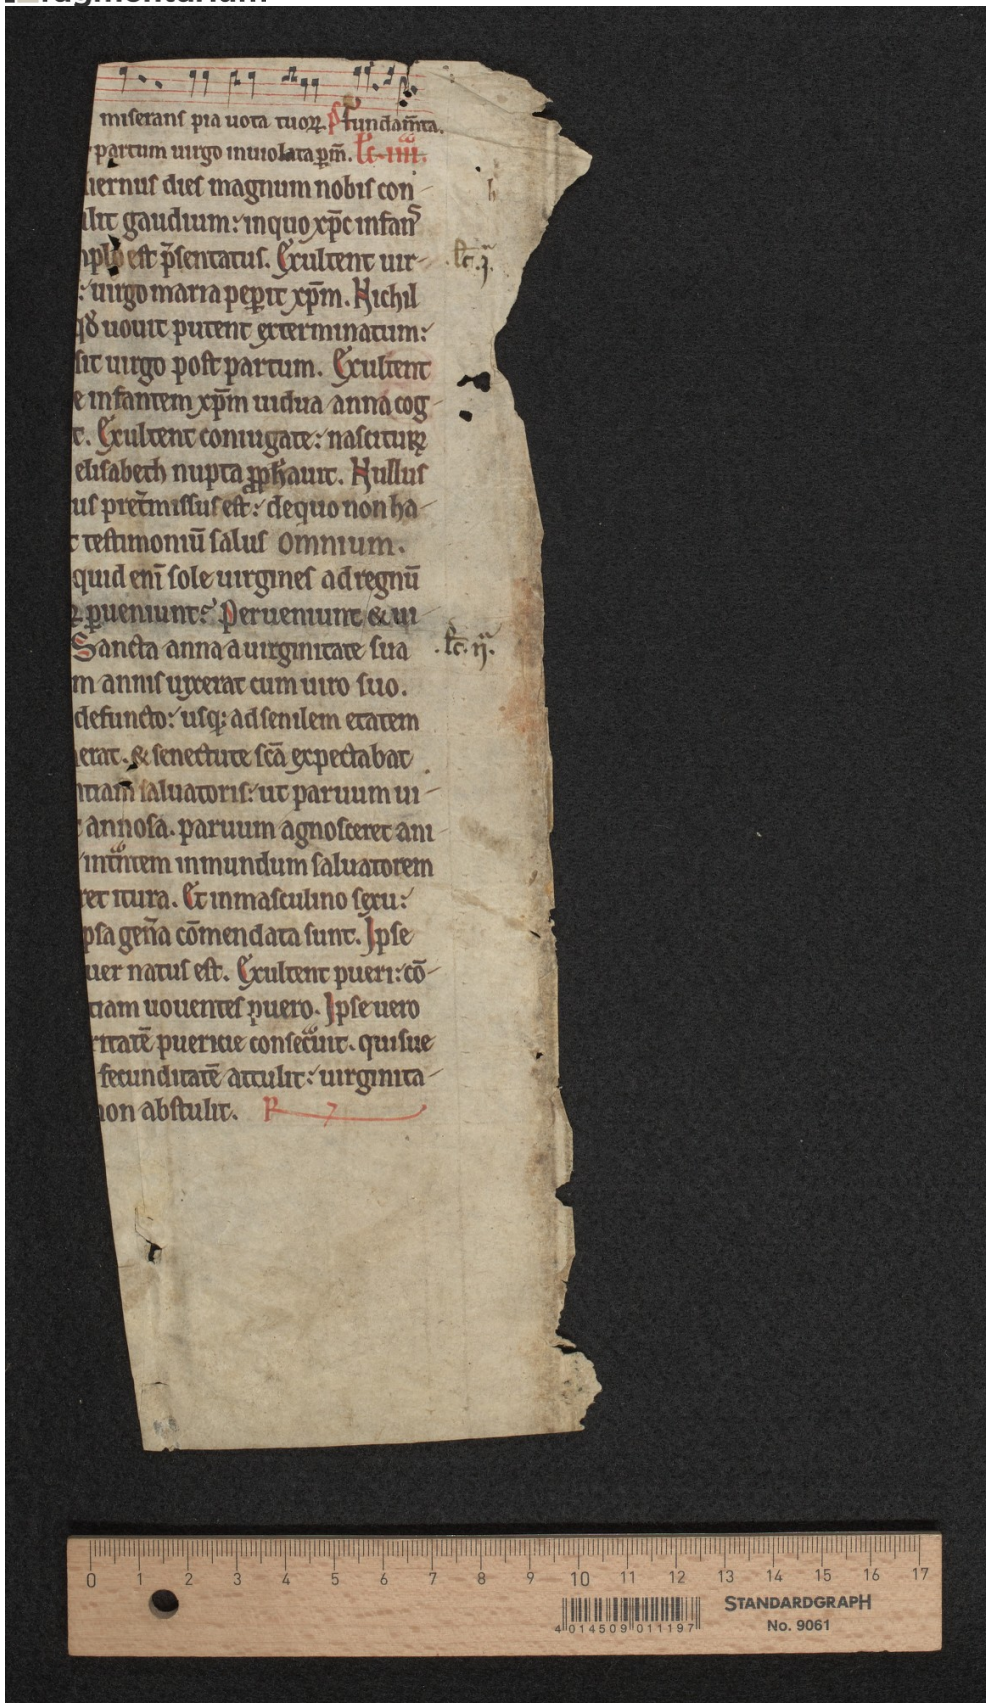 ragmentarium
miserans pia uota tuoꝝ. P̃s fundam̄ta.
partum uirgo inuiolata ꝑm̄. Lc̄. iiii.
iernus dies magnum nobis con
lit gaudium: in quo xp̄c infans
h
est p̄sentatus. Exultent uir
Lc̄. j.
uirgo maria peꝑit xp̄m. Nichil
qđ uouit putent exterminatum:
sit uirgo post partum. Exultent
e infantem xp̄m uidua anna cog
t. Exultent coniugate: nasciturꝝ
elisabeth nupta ꝓph̄auit. Nullus
us pret̄missus est: de quo non ha
t testimoniū salus omnium.
quid enī sole uirgines ad regnū
ꝑueniunt? Perueniunt & ui
Sancta anna a uirginitate sua
Lc̄. ij.
m annis uixerat cum uiro suo.
defuncto: usq; ad senilem etatem
erat. & senectute sc̄a expectabat
ntiam saluatoris: ut paruum ui
annosa. paruum agnosceret ani
intn̄tem in mundum saluatorem
ret itura. Et in masculino sexu:
psa gen̄a cōmendata sunt. Ipse
uer natus est. Exultent pueri: cō
tiam uouentes puero. Ipse uero
ritatē puericie consecuit. quisue
fecunditatē attulit: uirginita
non abstulit. R
0 1 2 3 4 5 6 7 8 9 10 11 12 13 14 15 16 17
4 014509 011197
STANDARDGRAPH
No. 9061